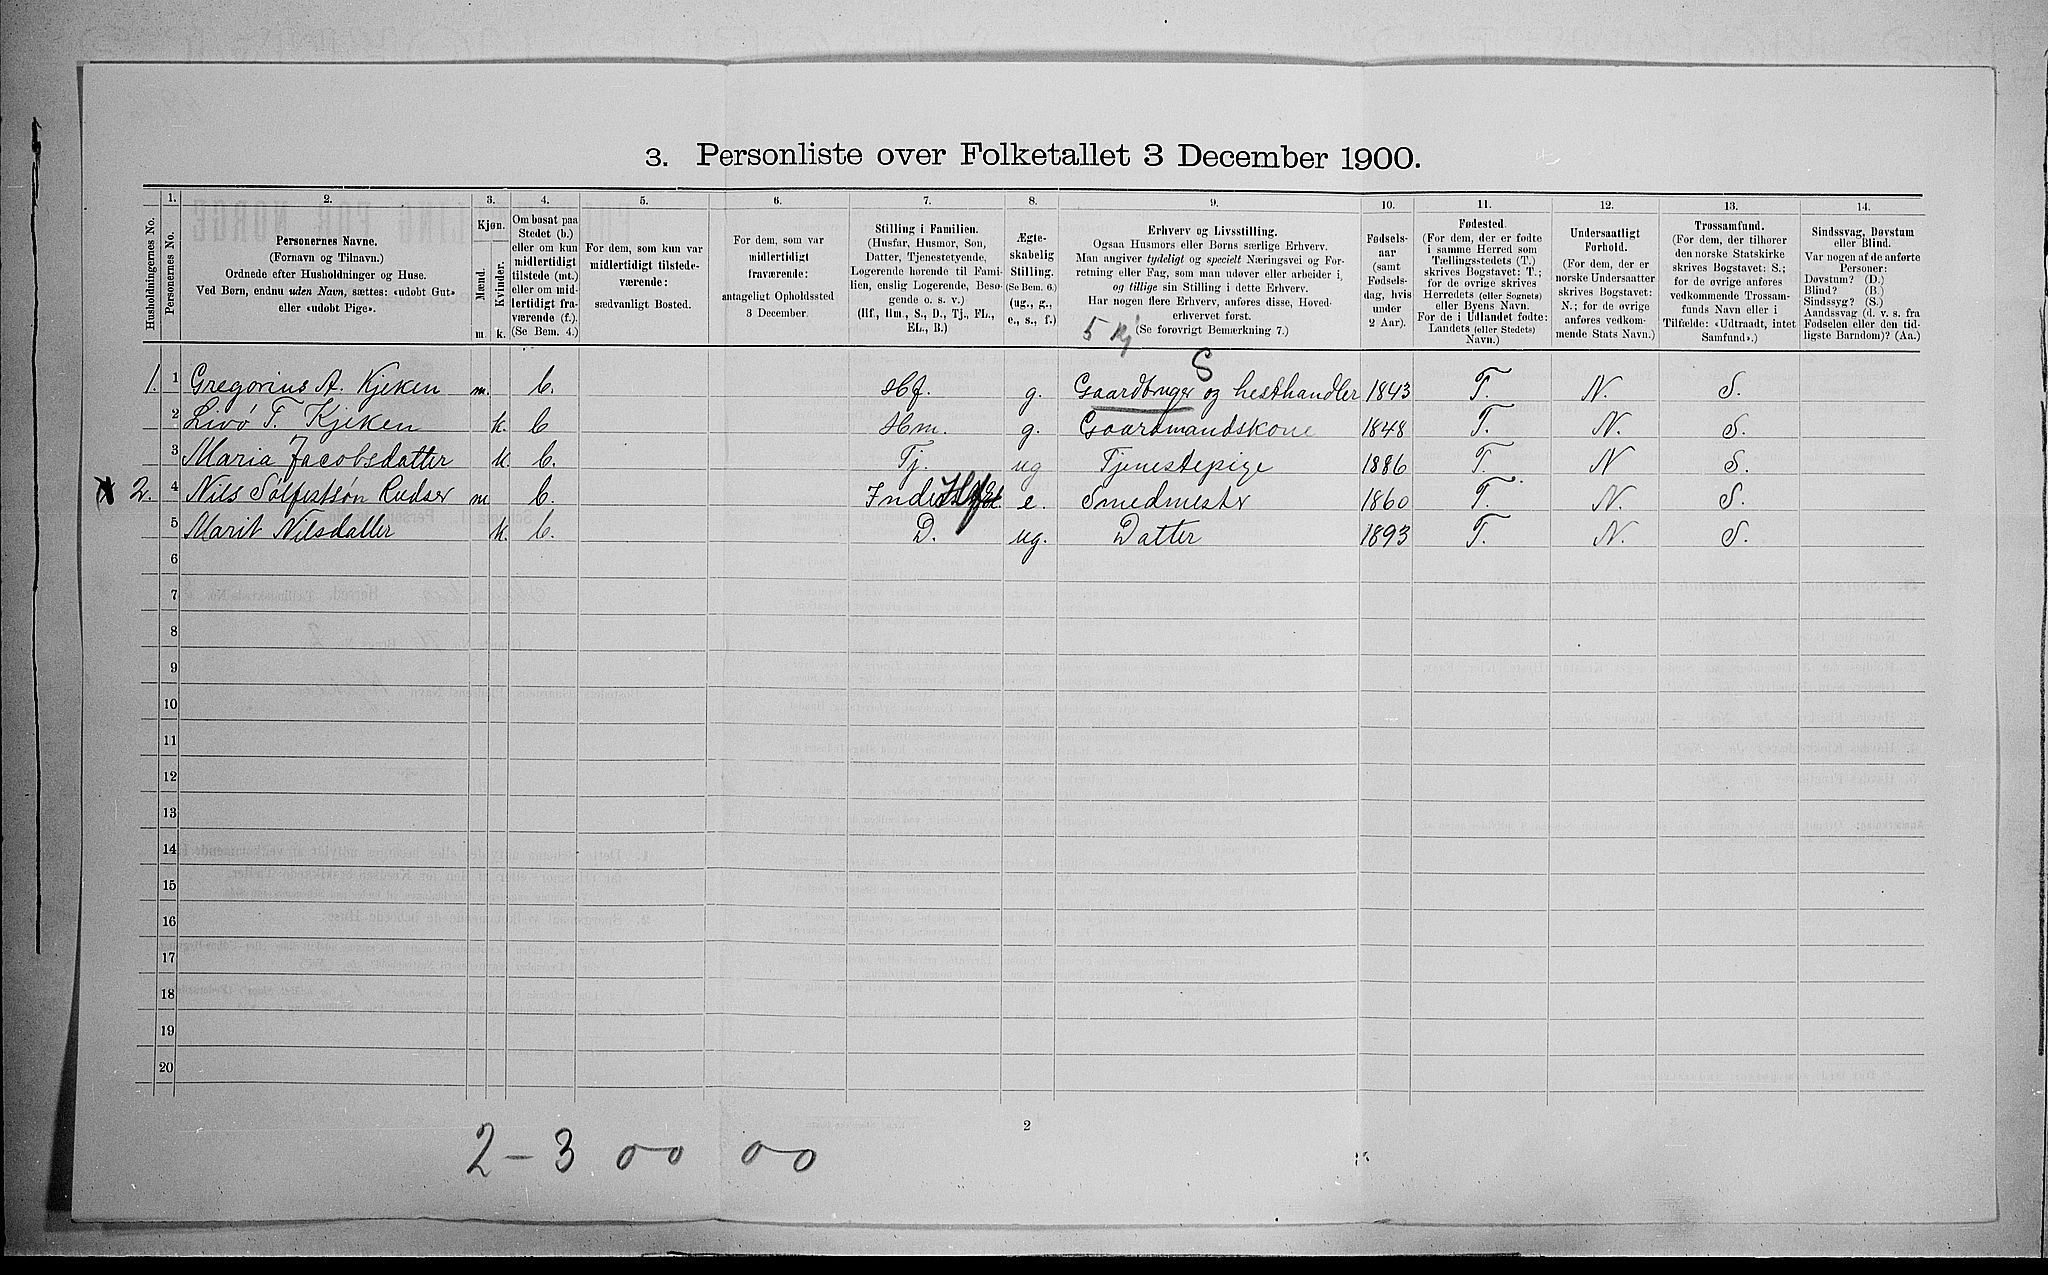 3. Personliste over Folketallet 3 December 1900.
1. 2. 3. 4. 5. 6. 7. 8. 9. 10. 11. 12. 13. 14.
Husholdningernes No.
Personernes No.
Personernes Navne.
(Fornavn og Tilnavn.)
Ordnede efter Husholdninger og Huse.
Ved Børn, endnu uden Navn, sættes: «udøbt Gut»
eller «udøbt Pige».
Kjøn.
Mænd.
Kvinder.
m. k.
Om bosat paa
Stedet (b.)
eller om kun
midlertidigt
tilstede (mt.)
eller om mid-
lertidigt fra-
værende (f.).
(Se Bem. 4.)
For dem, som kun var
midlertidigt tilstede-
værende:
sædvanligt Bosted.
For dem, som var
midlertidigt
fraværende:
antageligt Opholdssted
3 December.
Stilling i Familien.
(Husfar, Husmor, Søn,
Datter, Tjenestetyende,
Logerende hørende til Fami-
lien, enslig Logerende, Besø-
gende o. s. v.)
(Hf., Hm., S., D., Tj., FL.,
EL., B.)
Ægte-
skabelig
Stilling.
(Se Bem. 6.)
(ug., g.,
e., s., f.)
Erhverv og Livsstilling.
Ogsaa Husmors eller Børns særlige Erhverv.
Man angiver tydeligt og specielt Næringsvei og For-
retning eller Fag, som man udøver eller arbeider i,
og tillige sin Stilling i dette Erhverv.
Har nogen flere Erhverv, anføres disse, Hoved-
erhvervet først.
(Se forøvrigt Bemærkning 7.)
Fødsels-
aar
(samt
Fødsels-
dag, hvis
under
2 Aar).
Fødested.
(For dem, der er fødte
i samme Herred som
Tællingsstedets (T.)
skrives Bogstavet: T.;
for de øvrige skrives
Herredets (eller Sognets)
eller Byens Navn.
For de i Udlandet fødte:
Landets (eller Stedets)
Navn.)
Undersaatligt
Forhold.
(For dem, der er
norske Undersaatter
skrives Bogstavet:
N.; for de øvrige
anføres vedkom-
mende Stats Navn.)
Trossamfund.
(For dem, der tilhører
den norske Statskirke
skrives Bogstavet: S.;
for de øvrige anføres
vedkommende Trossam-
funds Navn eller i
Tilfælde: «Udtraadt, intet
Samfund».)
Sindssvag, Døvstum
eller Blind.
Var nogen af de anførte
Personer:
Døvstum? (D.)
Blind? (B.)
Sindssyg? (S.)
Aandssvag (d. v. s. fra
Fødselen eller den tid-
ligste Barndom)? (Aa.)
5
S
1. 1 Gregorius A. Kjeken m. b. Hf. g. Gaardbruger og hesthandler 1843 T. N. S.
2 Livø T. Kjeken k. b Hm. g. Gaardmandskone 1848 T. N. S.
3 Maria Jacobsdatter k. b. Tj. ug Tjenestepige 1886 T. N S.
2. 4 Nils Sølfestsøn Rudser m b. e. Smedmester 1860 T. N. S.
5 Marit Nilsdatter k. b. D. ug. Datter 1893 T. N. S.
6
7
8
9
10
11
12
13
14
15
16
17
18
19
20
2
2-3 00 00